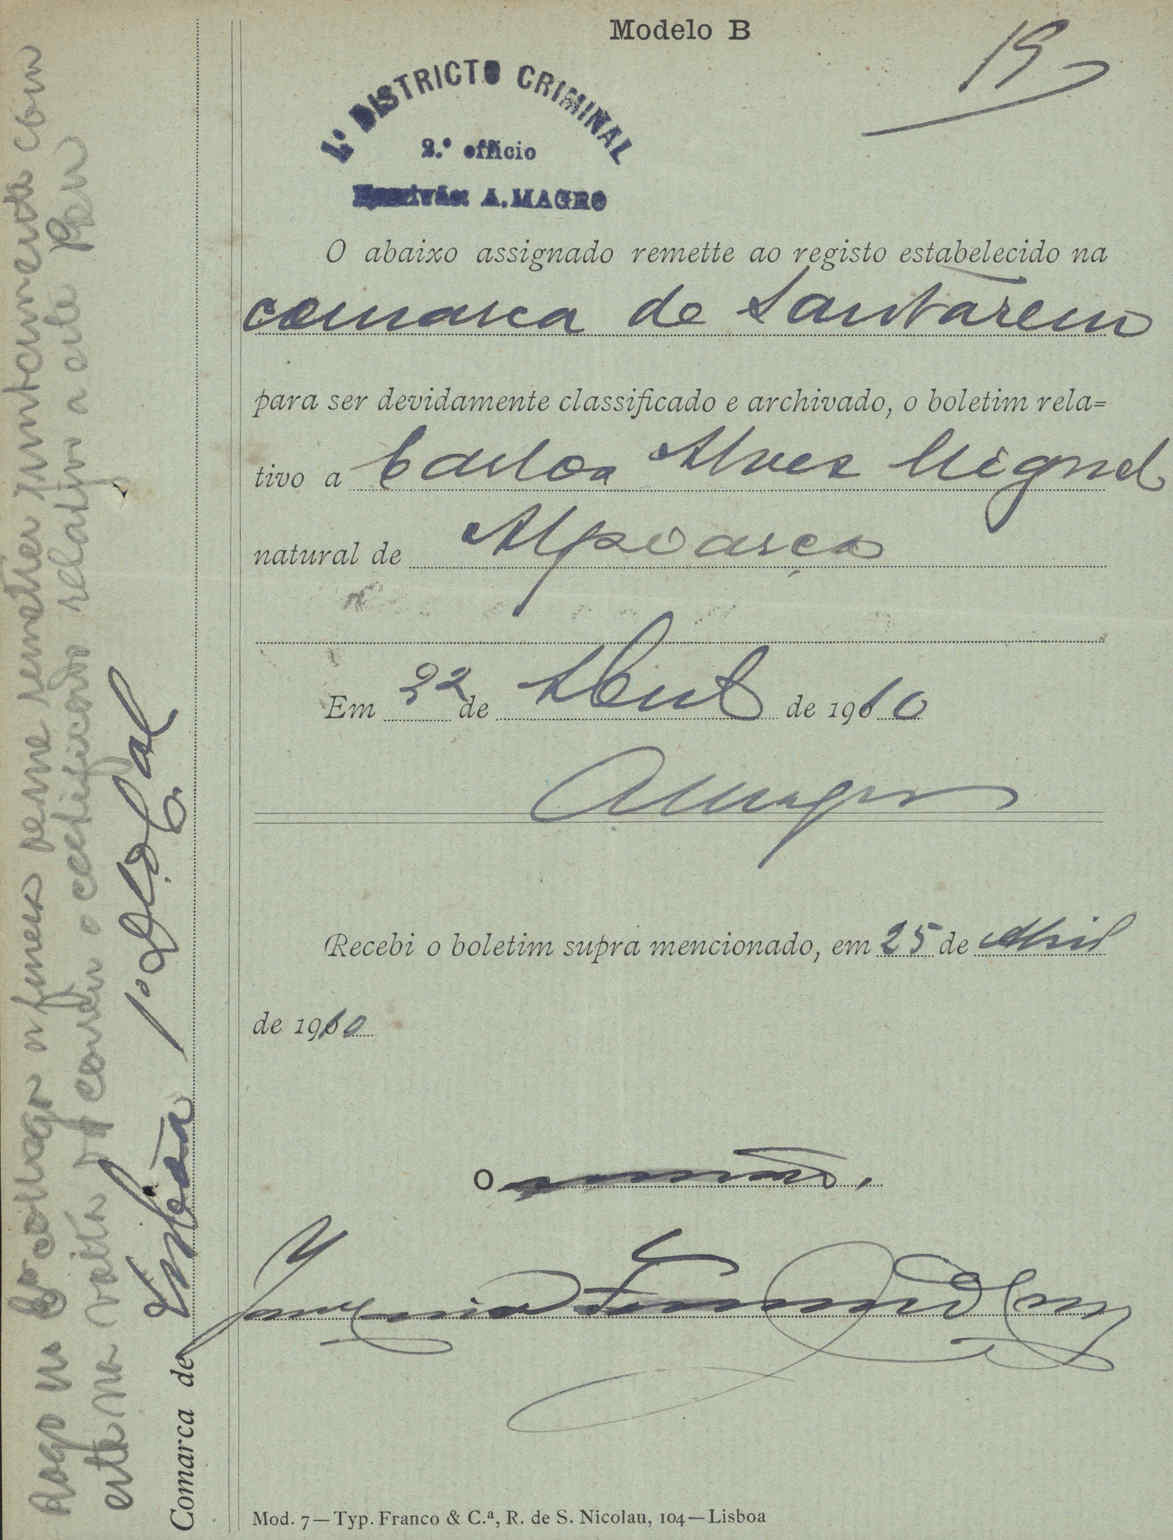 Modelo B
19
1.º DISTRICTO CRIMINAL
2.º officio
Escrivão: A. MAGRO
O abaixo assignado remette ao registo estabelecido na
comarca de Santarem
para ser devidamente classificado e archivado, o boletim rela=
tivo a Carlos Alves Miguel
natural de Alpearça
Em 22 de Abril de 1910
AMagro
Recebi o boletim supra mencionado, em 25 de Abril
de 1910
O
Comarca de Lisboa 1º D.º Cal
Rogo ao collega a fineza de me remetter juntamente com
esta na volta do correio o certificado relativo a este Reu
Mod. 7—Typ. Franco & C.ª, R. de S. Nicolau, 104—Lisboa